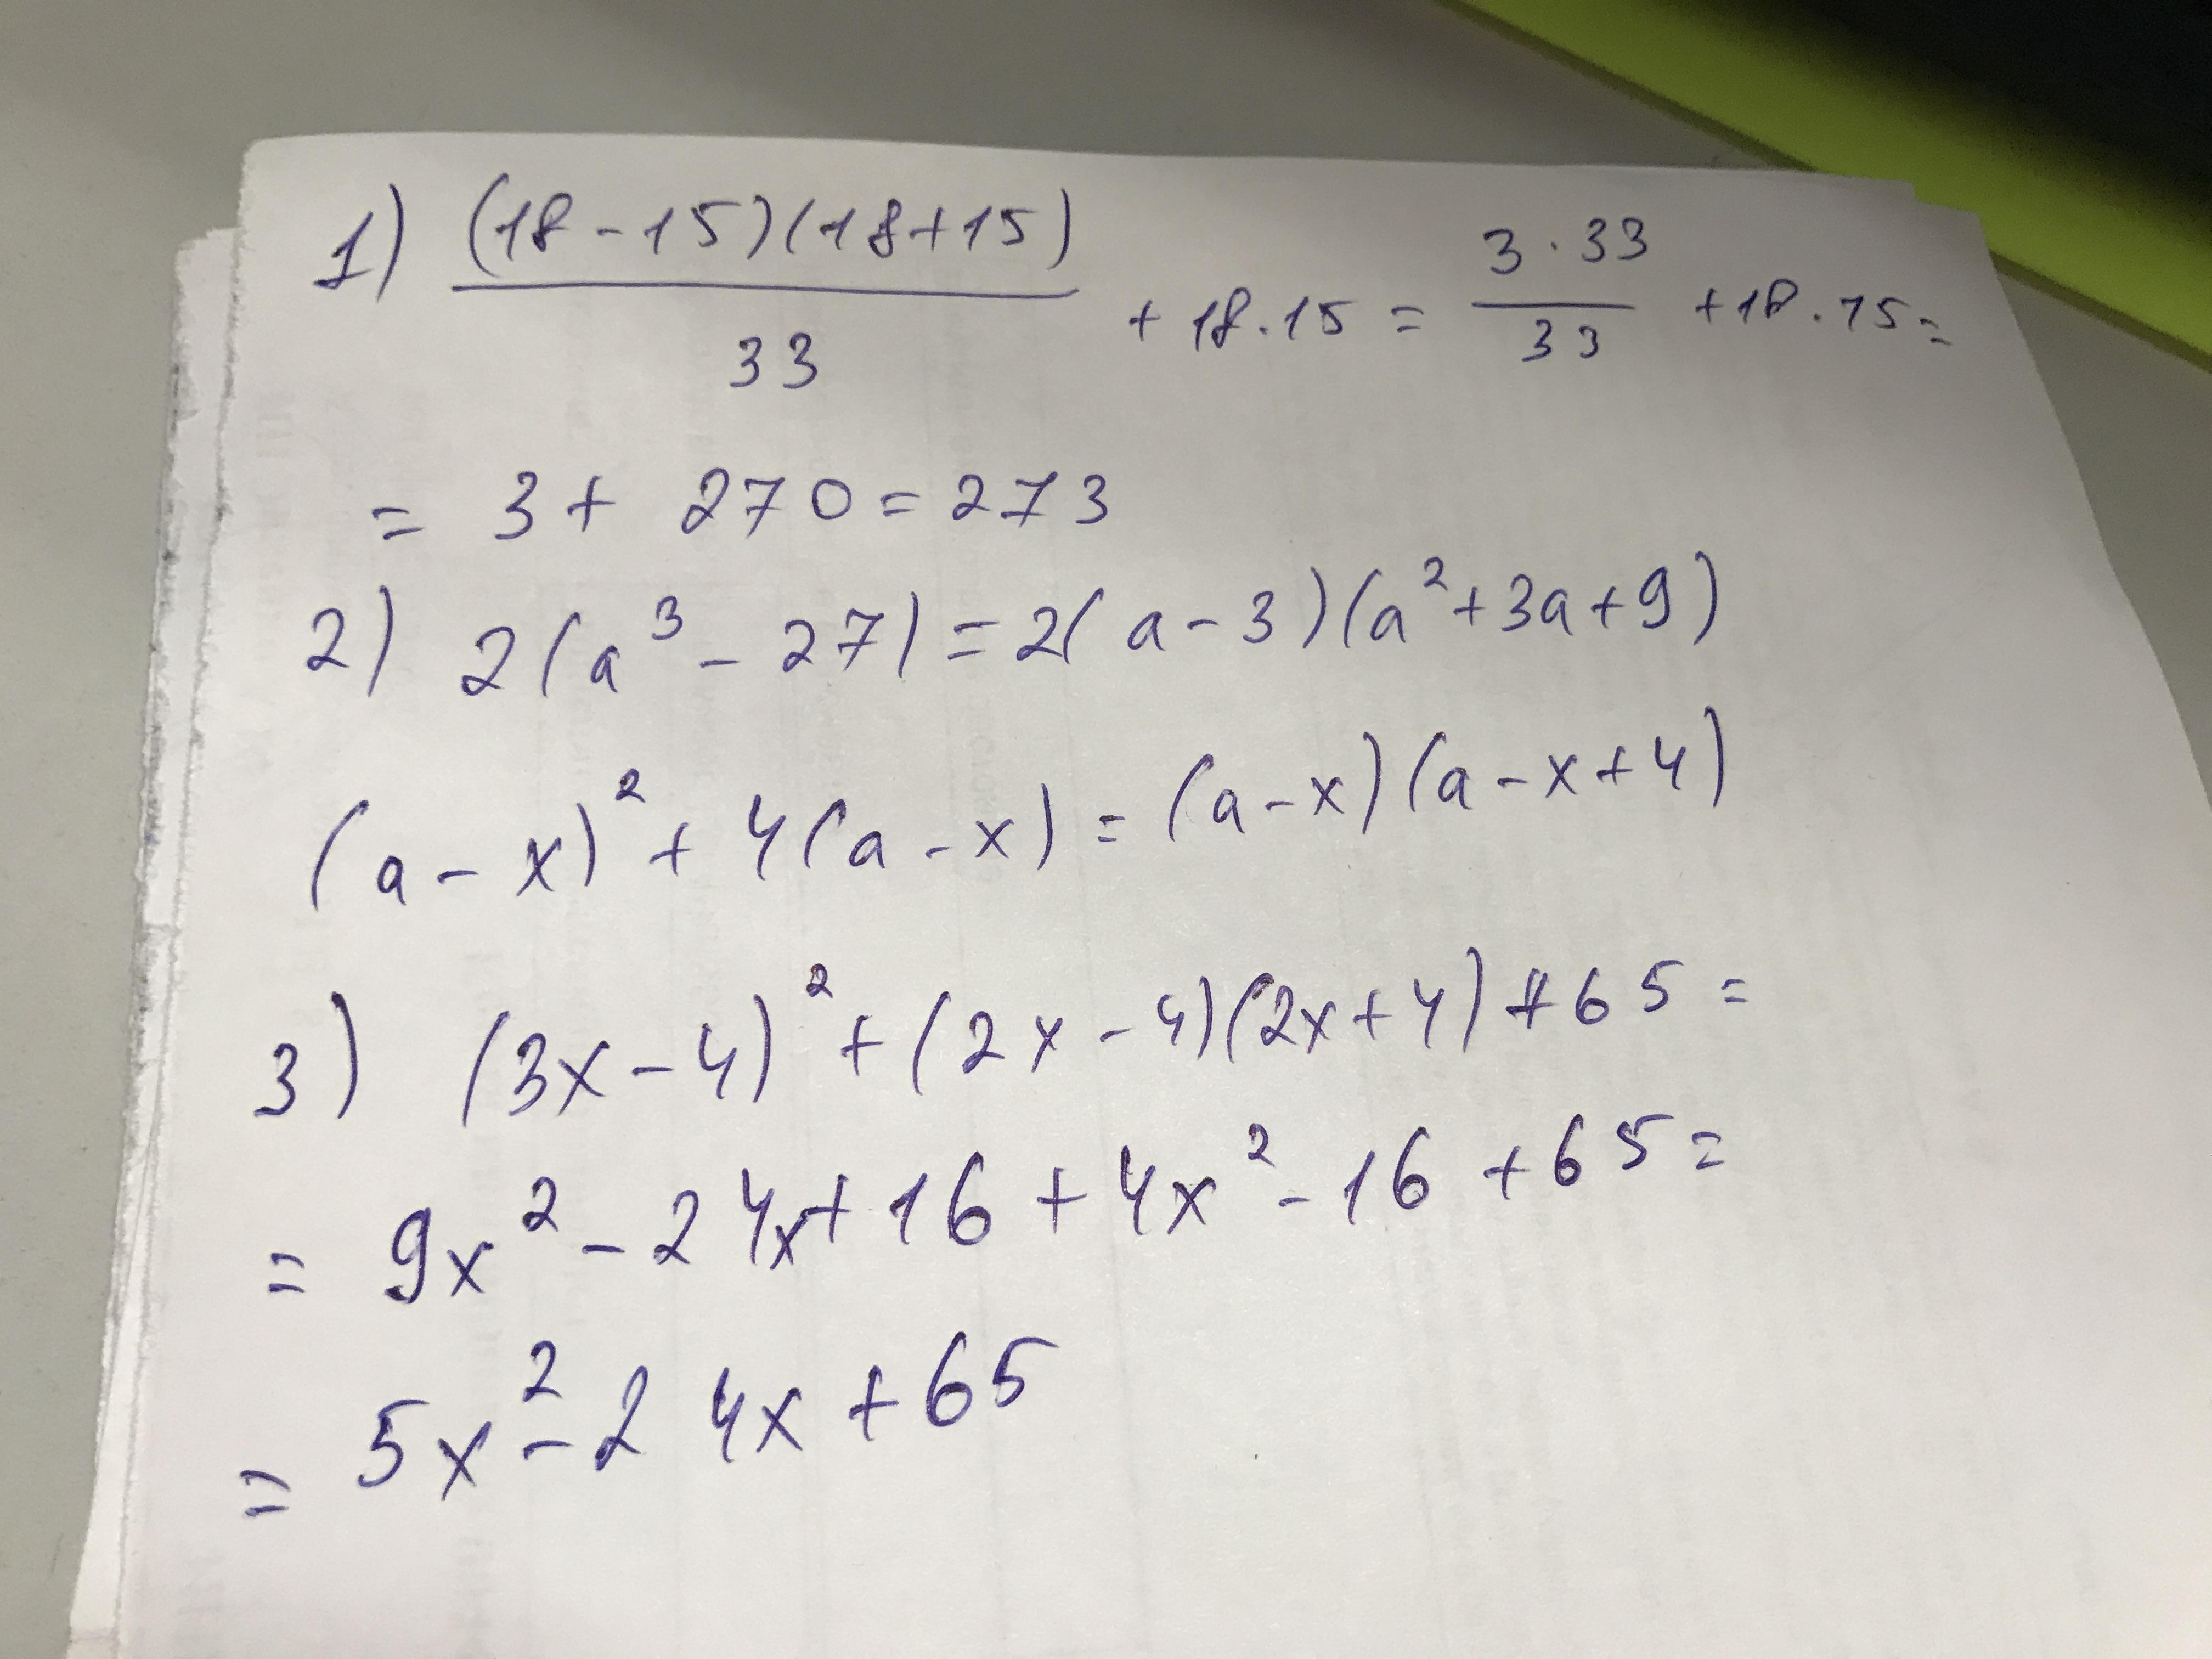 1) (18-15)(18+15)/33 + 18·15 = 3·33/33 + 18·15 =
= 3 + 270 = 273
2) 2(a³ - 27) = 2(a - 3)(a² + 3a + 9)
(a - x)² + 4(a - x) = (a - x)(a - x + 4)
3) (3x - 4)² + (2x - 4)(2x + 4) + 65 =
= 9x² - 24x + 16 + 4x² - 16 + 65 =
= 5x² - 24x + 65